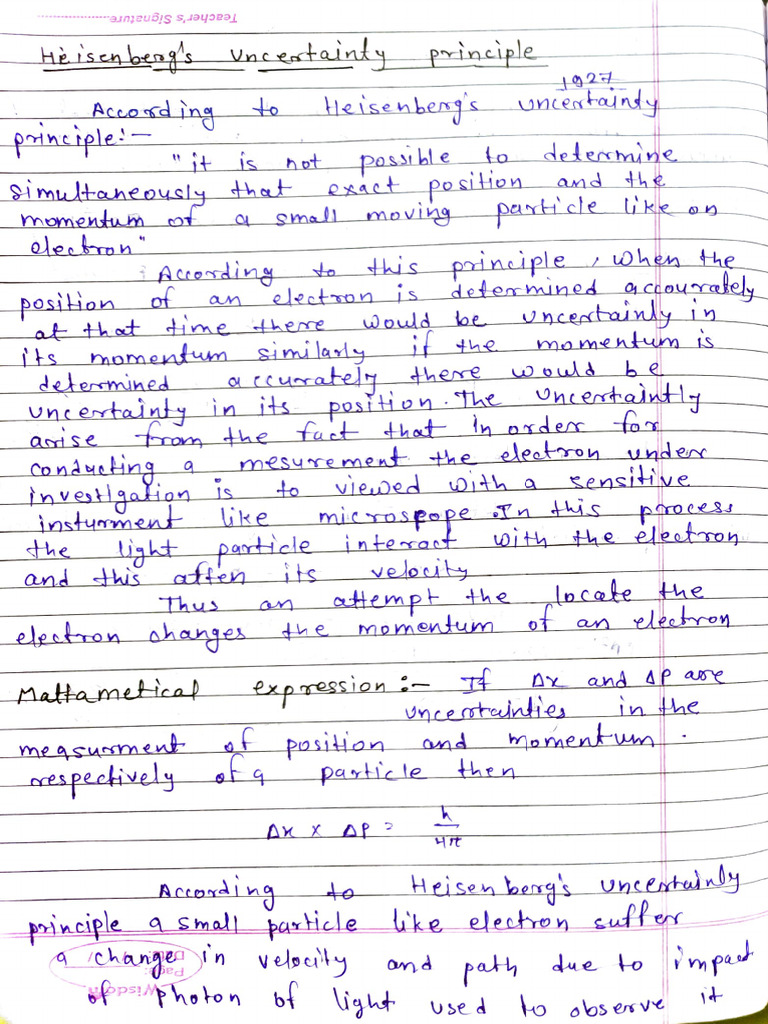 Teacher's Signature
Heisenberg's uncertainty principle
1927
According to Heisenberg's uncertainty
principle:-
"it is not possible to determine
simultaneously that exact position and the
momentum of a small moving particle like on
electron"
According to this principle, when the
position of an electron is determined accourately
at that time there would be uncertainly in
its momentum similarly if the momentum is
determined accurately there would be
uncertainty in its position. The uncertaintly
arise from the fact that in order for
conducting a mesurement the electron under
investigation is to viewed with a sensitive
insturment like microspope. In this process
the light particle interact with the electron
and this affen its velocity
Thus an attempt the locate the
electron changes the momentum of an electron
Mattametical expression:- If Δx and ΔP are
uncertainties in the
measurment of position and momentum.
respectively of a particle then
Δx x ΔP = h/4π
According to Heisenberg's uncertainly
principle a small particle like electron suffer
a change in velocity and path due to impact
of photon of light used to observe it
Page:
Wisdom